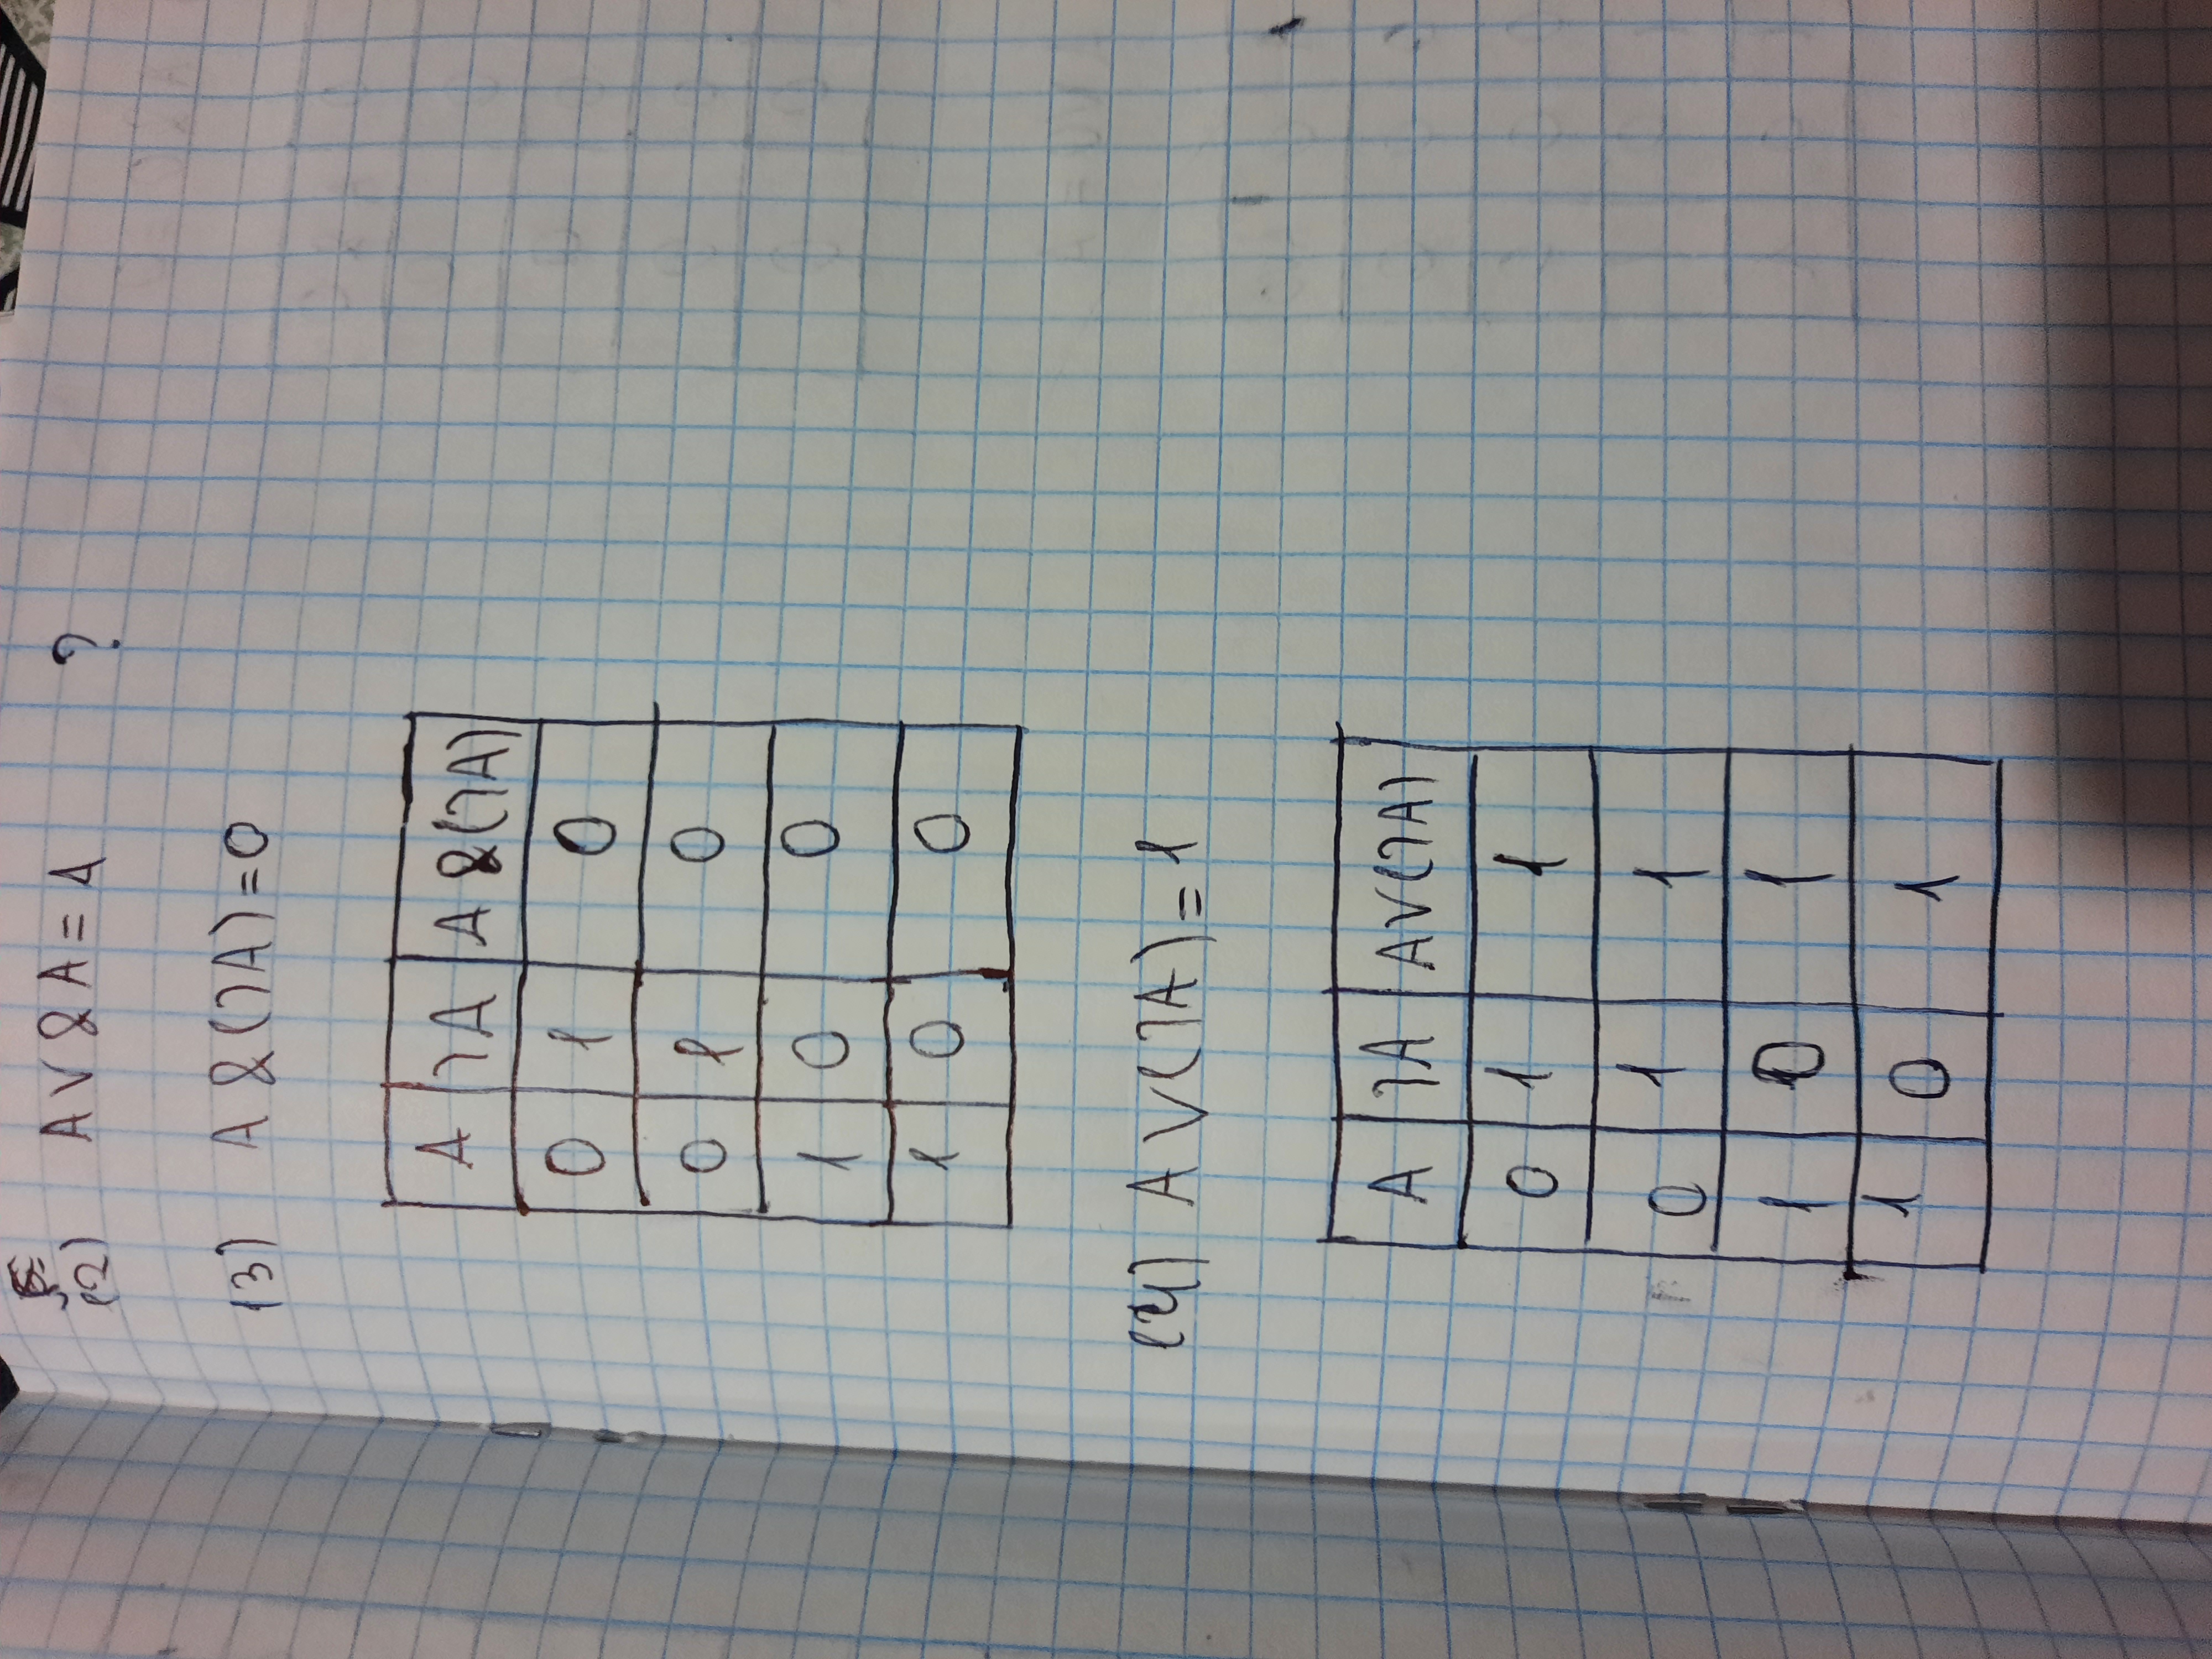 (2) A∨&A=A ?
(3) A&(¬A)=0
A ¬A A&(¬A)
0 1 0
0 1 0
1 0 0
1 0 0
(4) A∨(¬A)=1
A ¬A A∨(¬A)
0 1 1
0 1 1
1 0 1
1 0 1